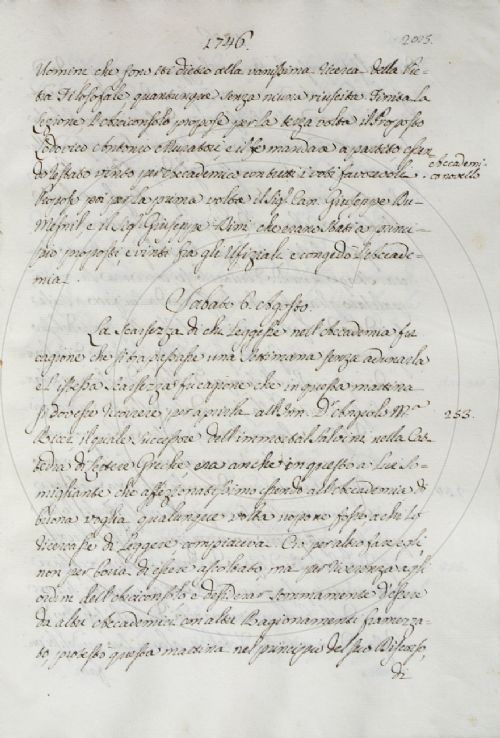 1746.
205.
Uomini che sono iti dietro alla vanissima ricerca della Pie-
tra Filosofale quantunque senza niuna riuscita. Finita la
Lezione l'Arciconsolo propose per la terza volta il Proposto
Lodovico Antonio Muratori, e il fe mandare a partito essen
do restato vinto per Accademico con tutti i voti favorevoli.
Accademi-
co novello
Propose poi per la prima volta il Sig. Cap. Giuseppe Bu-
Mesnil e il Sig. Giuseppe Bini che erano stati a princi-
pio proposti e vinti fra gli Ufiziali e congedò l'Accade-
mia.
Sabato 6. Agosto.
La scarsezza di chi leggesse nell'Accademia fu
cagione che si trapassasse una settimana senza adunarla
e l'istessa scarsezza fu cagione che in questa mattina
si dovesse ricorrere per aprirla all'Inn. Dr. Angiolo Ma.
253.
Ricci il quale successore dell'immortal Salvini nella Cat-
tedra di Lettere Greche era anche in questo a Lui So-
migliante che affezionatissimo essendo all'Accademia di
buona voglia qualunque volta uopo ne fosse a chi lo
ricercasse di leggere compiaceva. Ciò per altro face egli
non per boria di essere ascoltato, ma per riverenza agli
ordini dell'Arciconsolo e desiderar sommamente d'essere
da altri Accademici con altri Ragionamenti framezza-
to protestò questa mattina nel principio del suo Discorso,
di